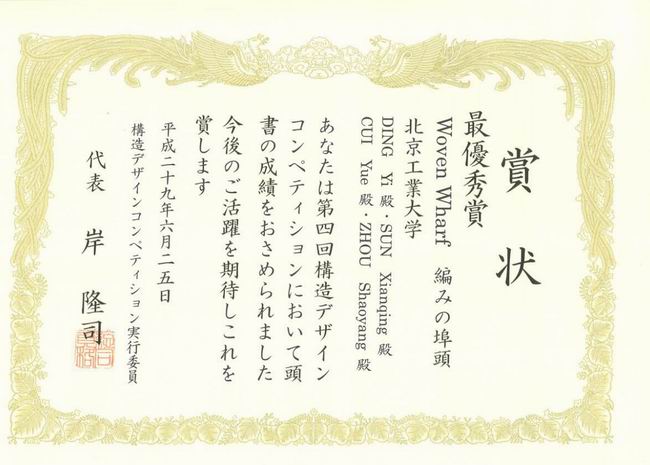 賞状
最優秀賞
Woven Wharf 編みの埠頭
北京工業大学
DING Yi 殿・SUN Xianqing 殿
CUI Yue 殿・ZHOU Shaoyang 殿
あなたは第四回構造デザイン
コンペティションにおいて頭
書の成績をおさめられました
今後のご活躍を期待しこれを
賞します
平成二十九年六月二五日
構造デザインコンペティション実行委員
代表 岸 隆司